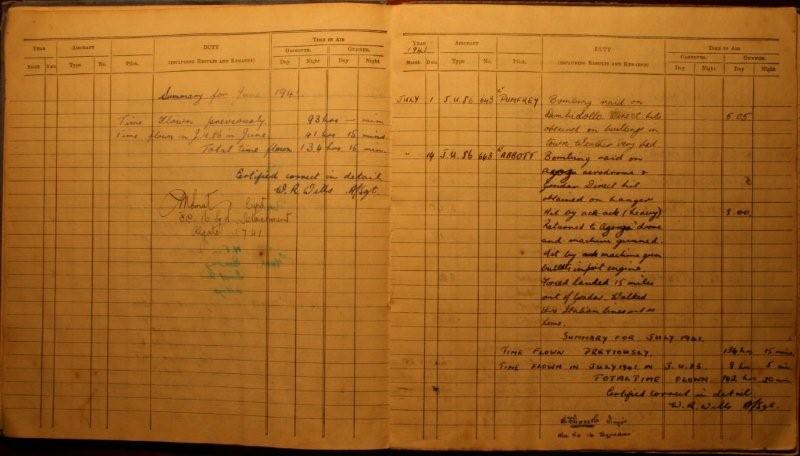 YEAR AIRCRAFT DUTY TIME IN AIR
Month Date Type No. Pilot. (INCLUDING RESULTS AND REMARKS) OBSERVER. GUNNER.
Day Night Day Night
Summary for June 1941.
Time flown previously. 93 hrs — min
Time flown in J.U.86 in June. 41 hrs 15 mins
Total time flown 134 hrs. 15 min.
Certified correct in detail
W. R. Wells A/Sgt.
Capt
Detachment
41
YEAR AIRCRAFT DUTY TIME IN AIR
1941 (INCLUDING RESULTS AND REMARKS) OBSERVER. GUNNER.
Month Date Type No. Pilot. Day Night Day Night
JULY 1 J.U.86 643 Lt PUMFREY Bombing raid on
Dembidollo. Direct hits 5.05
observed on buildings in
town. Weather very bad
" 14 J.U.86 643 Lt ABBOTT Bombing raid on
aerodrome &
Gondar Direct hit
obtained on hanger
Hit by ack ack (heavy) 3.00.
Returned to 'drome
and machine gunned.
Hit by machine gun
bullets in port engine
Forced landed 15 miles
out of Gondar. Walked
thro Italian lines
home.
SUMMARY FOR JULY 1941.
TIME FLOWN PREVIOUSLY. 134 hrs 15 mins
TIME FLOWN IN JULY 1941 IN J.U.86. 8 hrs 5 min
TOTAL TIME FLOWN 142 hrs 20 min
Certified correct in detail
W. R. Wells A/Sgt.